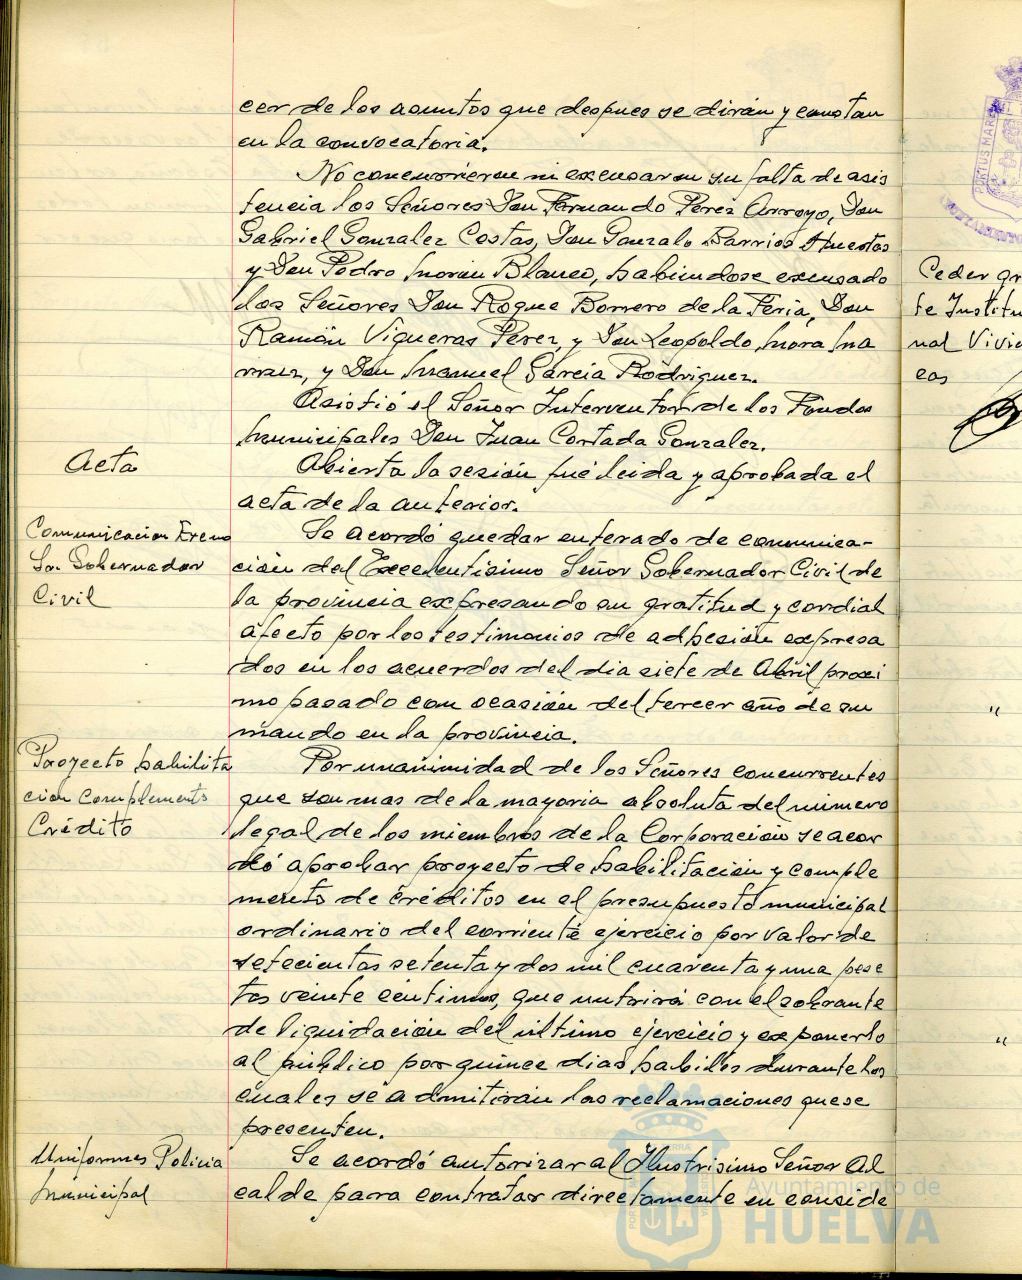 cer de los asuntos que despues se dirán y constan
en la convocatoria.
No concurrieron ni excusaron su falta de asis
tencia los Señores Don Fernando Perez Arroyo, Don
Gabriel Gonzalez Costas, Don Gonzalo Barrios Huestas
y Don Pedro Morón Blanco, habiendose excusado
los Señores Don Roque Borrero de la Feria, Don
Ramón Vigueras Perez, y Don Leopoldo Mora Ma
rraez, y Don Manuel Garcia Rodriguez.
Asistió el Señor Interventor de los Fondos
Municipales Don Juan Cortada Gonzalez.
Acta
Abierta la sesión fué leida y aprobada el
acta de la anterior.
Comunicacion Excmo
Sr. Gobernador
Civil
Se acordó quedar enterado de comunica-
ción del Excelentisimo Señor Gobernador Civil de
la provincia expresando su gratitud y cordial
afecto por los testimonios de adhesión expresa
dos en los acuerdos del dia siete de Abril proxi
mo pasado con ocasión del tercer año de su
mando en la provincia.
Proyecto habilita
cion complemento
Crédito
Por unanimidad de los Señores concurrentes
que son mas de la mayoria absoluta del número
legal de los miembros de la Corporación se acor
dó aprobar proyecto de habilitación y comple
mento de créditos en el presupuesto municipal
ordinario del corriente ejercicio por valor de
setecientas setenta y dos mil cuarenta y una pese
tas veinte centimos, que nutrirá con el sobrante
de liquidación del ultimo ejercicio y exponerlo
al público por quince dias habiles durante los
cuales se admitirán las reclamaciones que se
presenten.
Uniformes Policia
Municipal
Se acordó autorizar al Ilustrisimo Señor Al
calde para contratar directamente en conside
Ceder gr
te Institu
nal Vivie
cas
"
"
PORTUS MARI
Ayuntamiento de
HUELVA